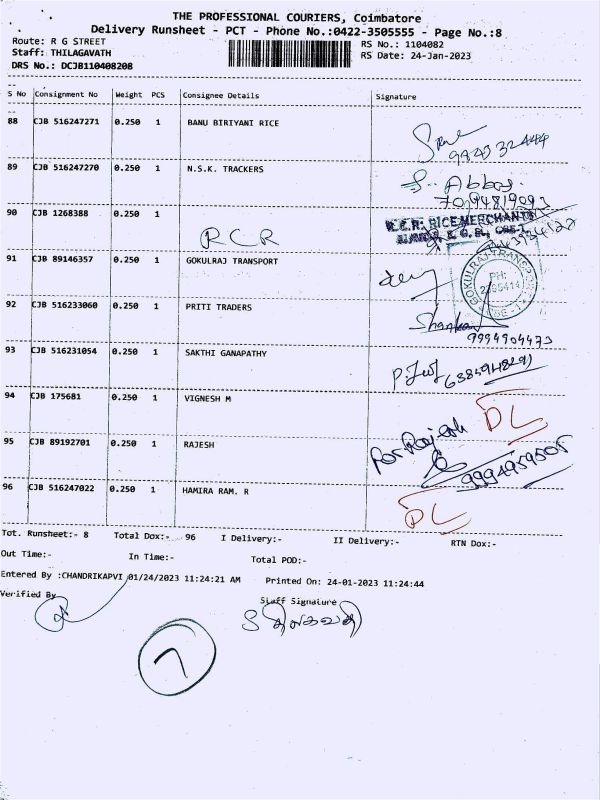 THE PROFESSIONAL COURIERS, Coimbatore
Delivery Runsheet - PCT - Phone No.:0422-3505555 - Page No.:8
Route: R G STREET
RS No.: 1104082
Staff: THILAGAVATH
RS Date: 24-Jan-2023
DRS No.: DCJB110408208
S No Consignment No Weight PCS Consignee Details Signature
88 CJB 516247271 0.250 1 BANU BIRIYANI RICE
89 CJB 516247270 0.250 1 N.S.K. TRACKERS
S. Abbas
7094819093
90 CJB 1268388 0.250 1
R.C.R. RICE MERCHANTS
RCR
91 CJB 89146357 0.250 1 GOKULRAJ TRANSPORT
GOKULRAJ TRANSPORT
PH:
92 CJB 516233060 0.250 1 PRITI TRADERS
Shankar
9994904473
93 CJB 516231054 0.250 1 SAKTHI GANAPATHY
94 CJB 175681 0.250 1 VIGNESH M
DL
95 CJB 89192701 0.250 1 RAJESH
Rajesh
9994959505
96 CJB 516247022 0.250 1 HAMIRA RAM. R
DL
Tot. Runsheet:- 8 Total Dox:- 96 I Delivery:- II Delivery:- RTN Dox:-
Out Time:- In Time:- Total POD:-
Entered By :CHANDRIKAPVI 01/24/2023 11:24:21 AM Printed On: 24-01-2023 11:24:44
Verified By Staff Signature
S திலகவதி
7